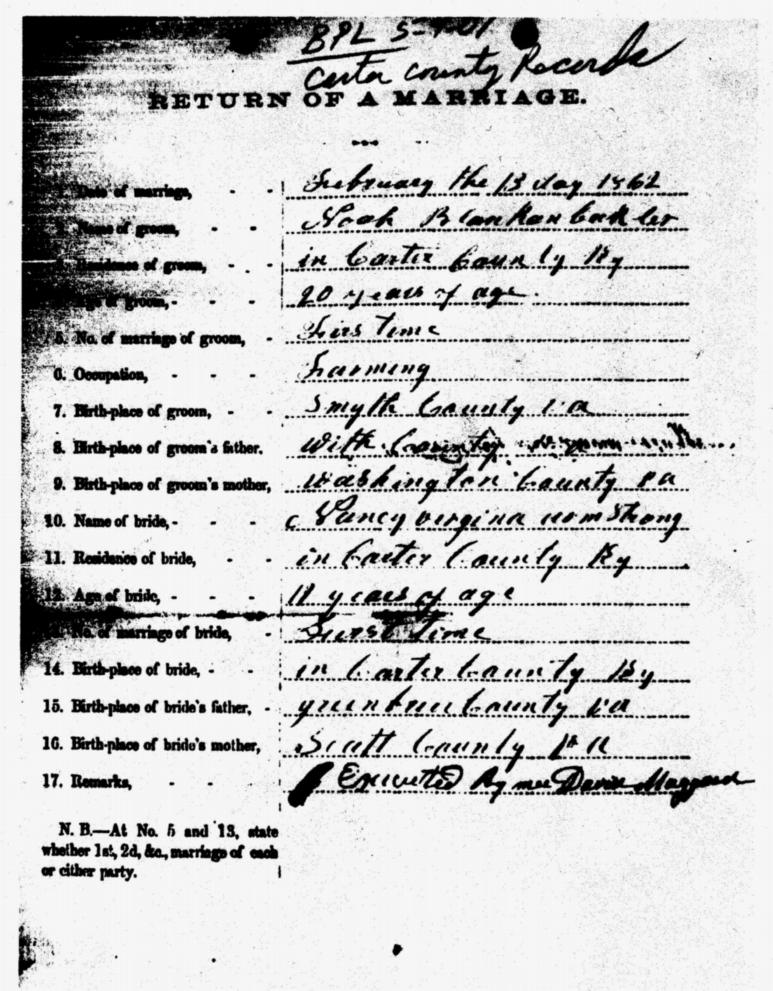 BPL 5-
Carter County Records
RETURN OF A MARRIAGE.
Date of marriage, - - February the 13 day 1862
Name of groom, - - Noah Blankanbaekler
Residence of groom, - - in Carter County Ky
Age of groom, - - - 20 years of age.
5. No. of marriage of groom, - Firs time
6. Occupation, - - - Farming
7. Birth-place of groom, - - Smyth County va
8. Birth-place of groom's father. With County
9. Birth-place of groom's mother, Washington County va
10. Name of bride, - - - Nancy vergina armstrong
11. Residence of bride, - - in Carter County Ky
12. Age of bride, - - - years of age
13. No. of marriage of bride, - Furst time
14. Birth-place of bride, - - in Carter County Ky
15. Birth-place of bride's father, - greenbree County va
16. Birth-place of bride's mother, Scott County va
17. Remarks, - - - Executed By me David Maggard
N. B.—At No. 5 and 13, state
whether 1st, 2d, &c., marriage of each
or either party.